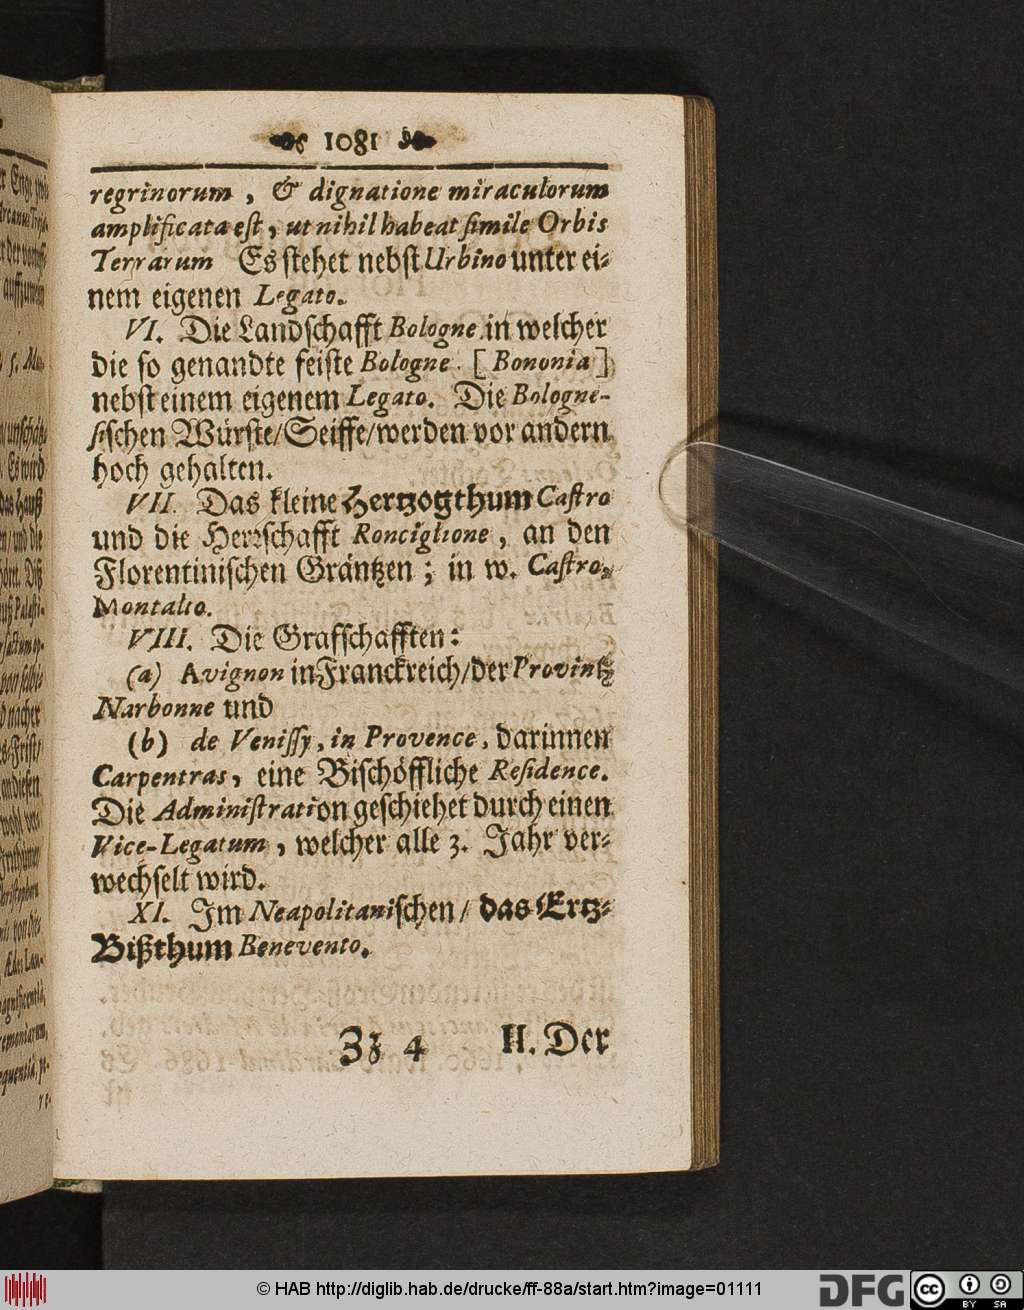 1081
regrinorum, & dignatione miraculorum
amplificata est, ut nihil habeat simile Orbis
Terrarum Es stehet nebst Urbino unter ei-
nem eigenen Legato.
VI. Die Landschafft Bologne in welcher
die so genandte feiste Bologne. [Bononia]
nebst einem eigenem Legato. Die Bologne-
sischen Würste/Seiffe/werden vor andern
hoch gehalten.
VII. Das kleine Hertzogthum Castro
und die Herrschafft Ronciglione, an den
Florentinischen Gräntzen; in w. Castro,
Montalto.
VIII. Die Grafschafften:
(a) Avignon in Franckreich/der Provintz
Narbonne und
(b) de Venissy, in Provence, darinnen
Carpentras, eine Bischöffliche Residence.
Die Administration geschiehet durch einen
Vice-Legatum, welcher alle 3. Jahr ver-
wechselt wird.
XI. Im Neapolitanischen/ das Ertz-
Bißthum Benevento.
Zz 4 II. Der
© HAB http://diglib.hab.de/drucke/ff-88a/start.htm?image=01111
DFG cc BY SA